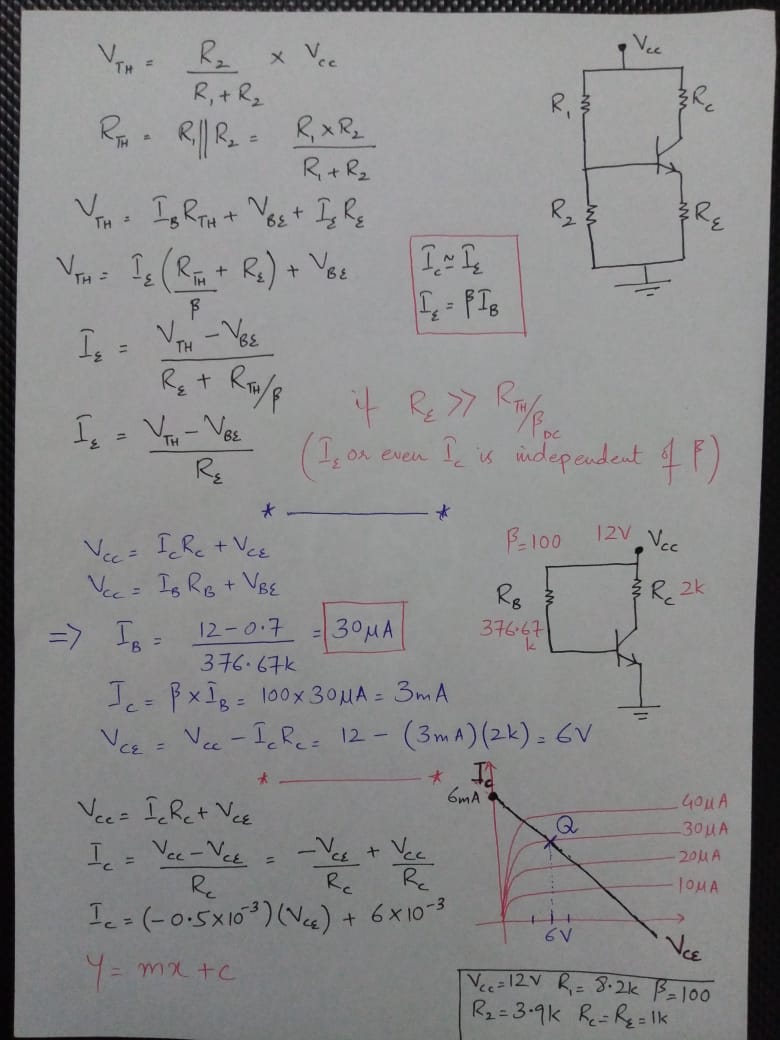 V_TH = R₂ / (R₁ + R₂) × Vcc
R_TH = R₁||R₂ = (R₁ × R₂) / (R₁ + R₂)
V_TH = I_B R_TH + V_BE + I_E R_E
V_TH = I_E (R_TH/β + R_E) + V_BE
I_E = (V_TH − V_BE) / (R_E + R_TH/β)
I_E = (V_TH − V_BE) / R_E
I_C ≃ I_E
I_E = β I_B
Vcc
R₁
Rc
R₂
R_E
if R_E >> R_TH/β_DC
(I_E or even I_C is independent of β)
* ———— *
Vcc = Ic Rc + V_CE
Vcc = I_B R_B + V_BE
=> I_B = (12 − 0.7) / 376.67k = 30μA
Ic = β × I_B = 100 × 30μA = 3mA
V_CE = Vcc − Ic Rc = 12 − (3mA)(2k) = 6V
β=100
12V Vcc
R_B
376.67
k
Rc 2k
* ———— *
Vcc = Ic Rc + V_CE
Ic = (Vcc − V_CE) / Rc = −V_CE / Rc + Vcc / Rc
Ic = (−0.5×10⁻³)(V_CE) + 6×10⁻³
Y = mx + c
Ic
6mA
Q
40μA
30μA
20μA
10μA
6V
V_CE
Vcc=12V R₁= 8.2k β=100
R₂=3.9k Rc=R_E=1k